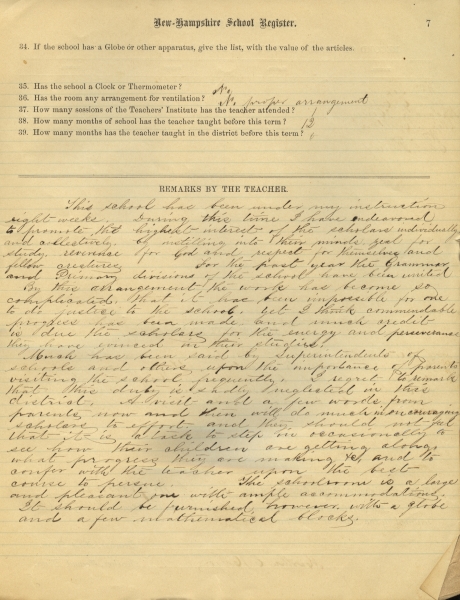 New-Hampshire School Register.
7
34. If the school has a Globe or other apparatus, give the list, with the value of the articles.
35. Has the school a Clock or Thermometer? No
36. Has the room any arrangement for ventilation? No proper arrangement
37. How many sessions of the Teachers' Institute has the teacher attended?
38. How many months of school has the teacher taught before this term? 12
39. How many months has the teacher taught in the district before this term?
REMARKS BY THE TEACHER.
This school has been under my instruction
eight weeks. During this time I have endeavored
to promote the highest interest of the scholars individually
and collectively by instilling into their minds zeal for
study, reverence for God and respect for themselves and
fellow creatures. For the past year the Grammar
and Primary divisions of the school have been united
By this arrangement the work has become so
complicated that it has been impossible for one
to do justice to the school. Yet I think commendable
progress has been made and much credit
is due the scholars for the energy and perseverance
they have evinced in their studies.
Much has been said by Superintendents of
schools and others upon the importance of parents
visiting the school frequently. I regret to remark
that this duty is sadly neglected in this
district. A visit and a few words from
parents now and then will do much in encouraging
scholars to effort and they should not feel
that it is a task to step in occasionally to
see how their children are getting along,
what progress they are making and to
confer with the teacher upon the best
course to persue. The schoolroom is a large
and pleasant one with ample accommodations.
It should be furnished, however, with a globe
and a few mathematical blocks.